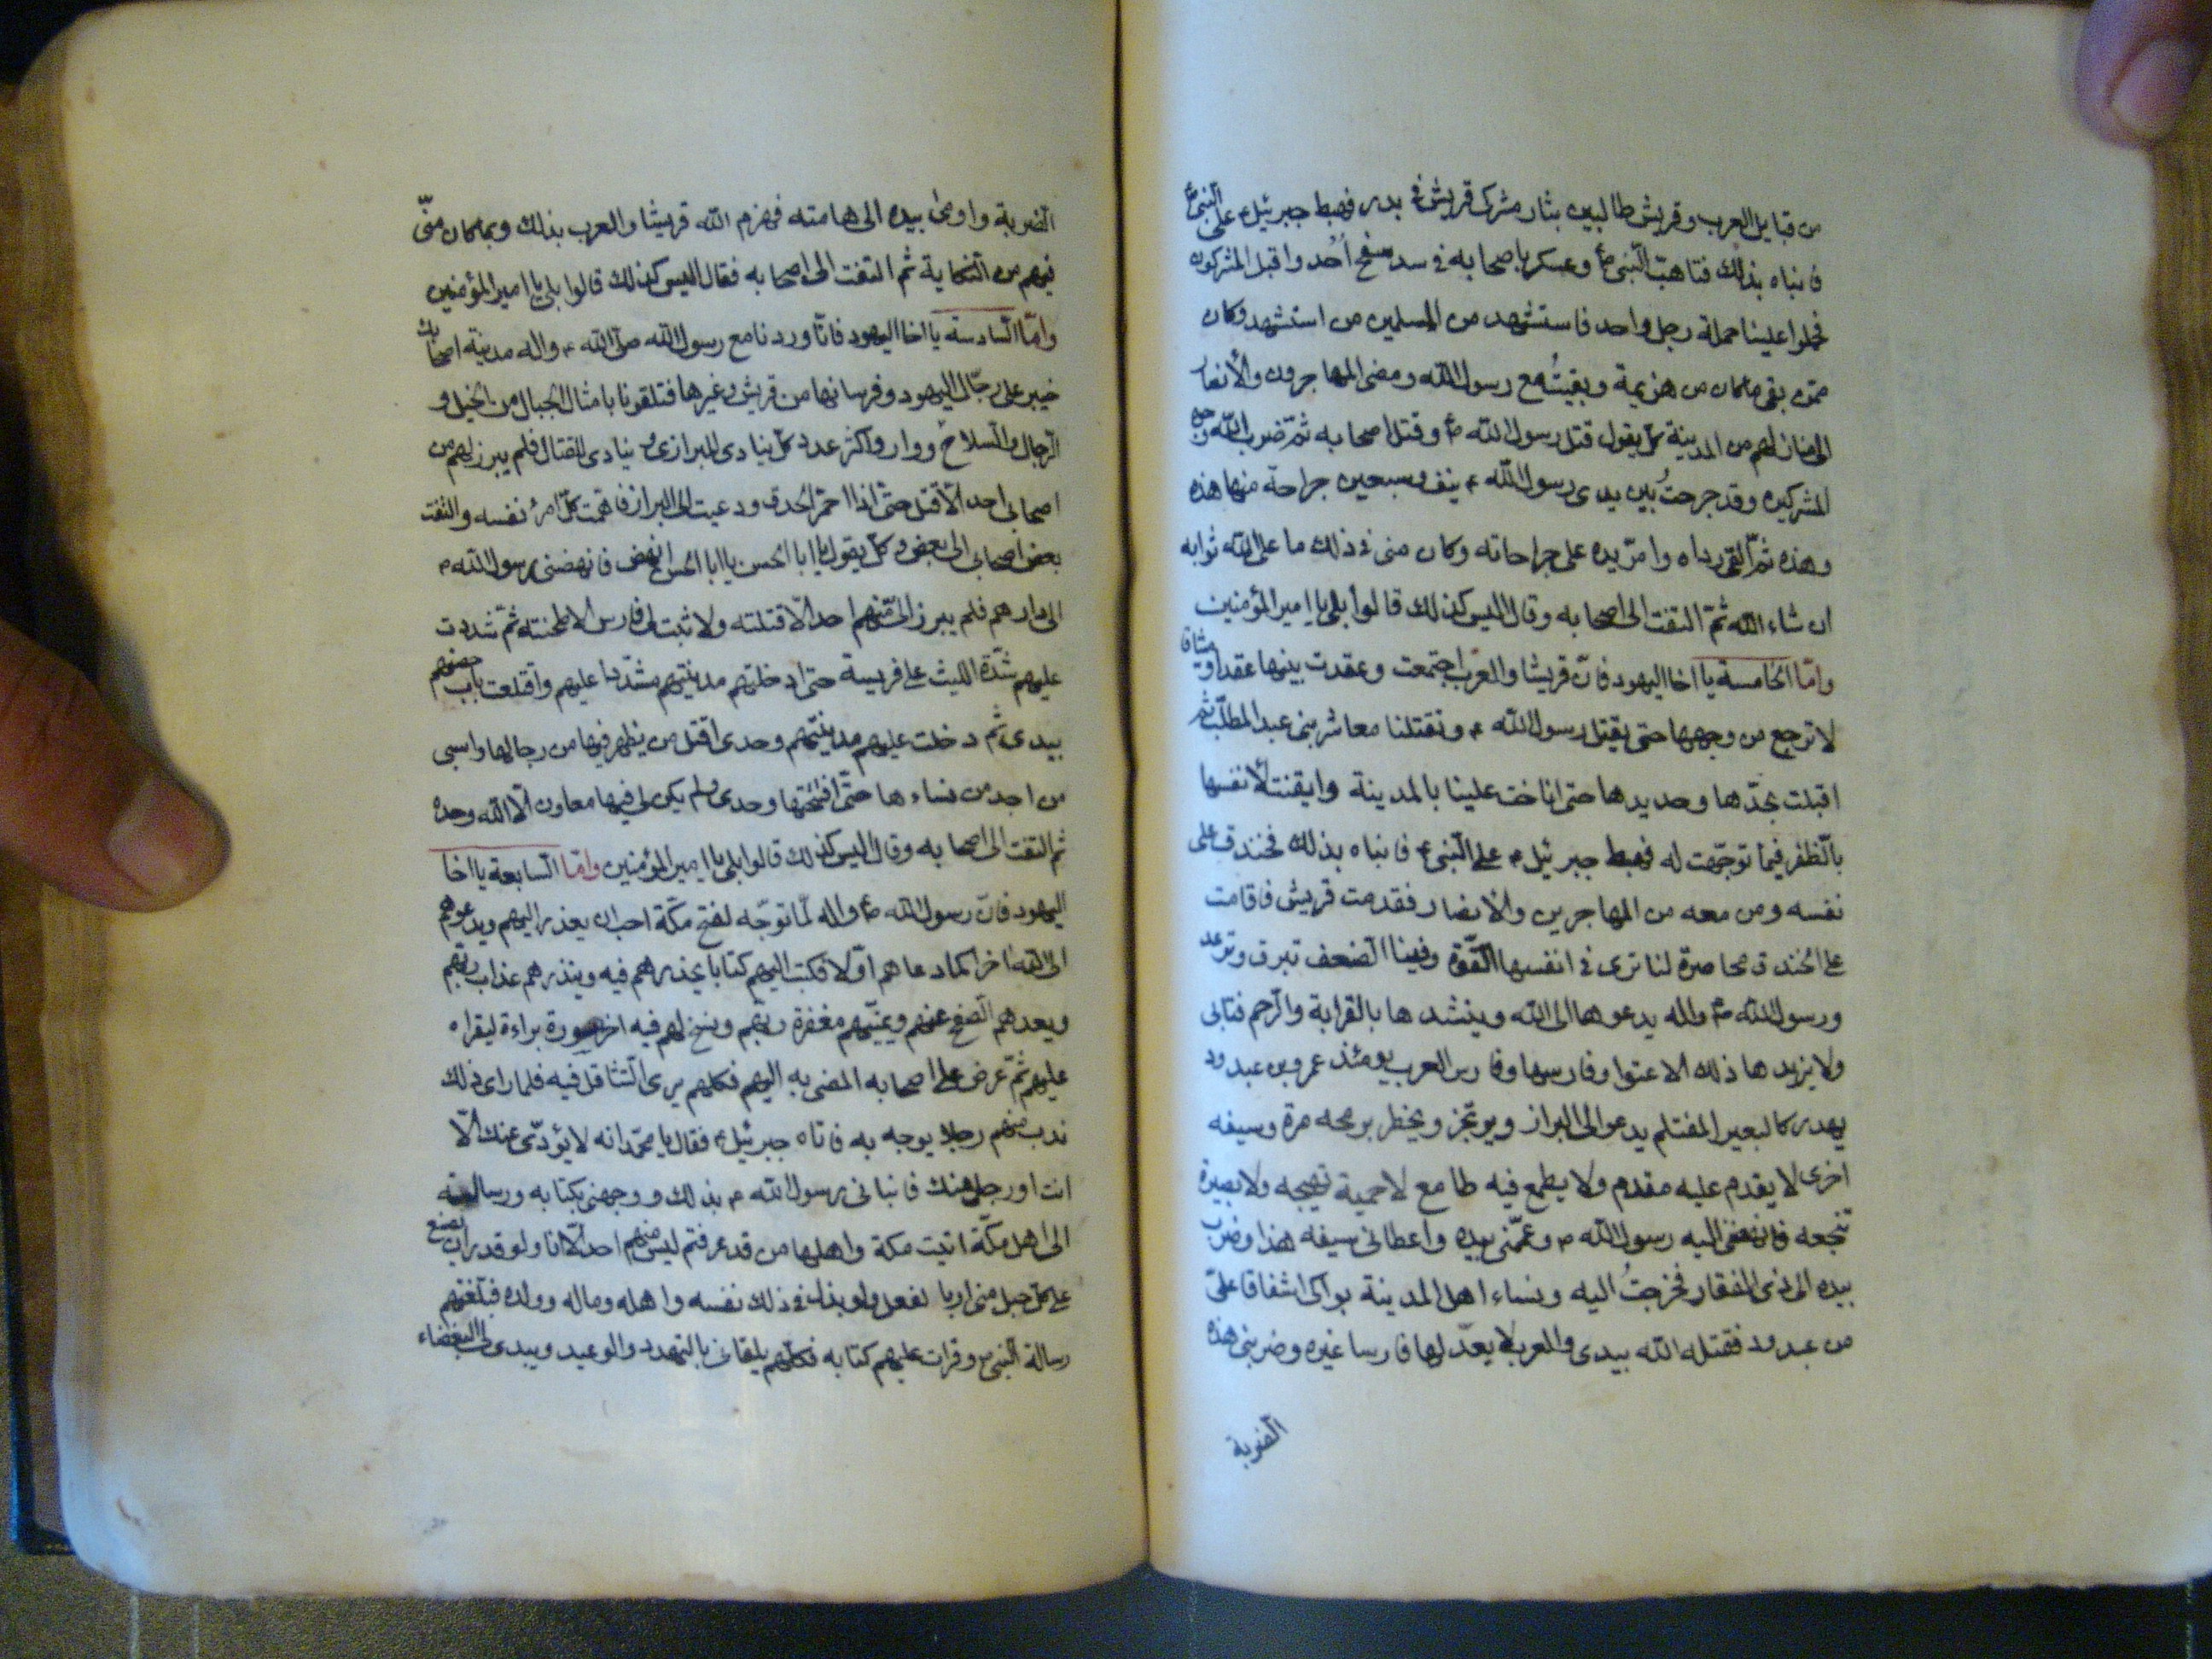 من قبايل العرب وقريش طالبين بثار مشركى قريش فى بدر فهبط جبرئيل ع على النبى ع
فانباه بذلك فتاهب النبى ص وعسكر باصحابه فى سد سفح احُد واقبل المشركون
فحملوا علينا حملة رجل واحد فاستشهد من المسلمين من استشهد وكان
ممن بقى ماكان من هزيمة وبقيتُ مع رسول الله ومضى المهاجرون والأنصار
الى منازلهم من المدينة كل يقول قتل رسول الله ص وقتل اصحابه ثمّ ضرب الله وجوه
المشركين وقد جرحتُ بين يدى رسول الله ص نيف وسبعين جراحة منها هذه
وهذه ثمّ القى رداه وامرّ يده على جراحاته وكان منى فى ذلك ما على الله ثوابه
ان شاء الله ثمّ التفت الى اصحابه وقال اليس كذلك قالوا بلى يا امير المؤمنين
وامّا الخامسة يا اخا اليهود فانّ قريشا والعرب اجتمعت وعقدت بينها عقدا وميثاقا
لا ترجع من وجهها حتى يقتل رسول الله ص وتقتلنا معاشر بنى عبد المطلب ثم
اقبلت بحدّها وحديدها حتى اناخت علينا بالمدينة وايقنت لأنفسها
بالظفر فيما توجّهت له فهبط جبرئيل ع على النبى ع فانباه بذلك فخندق على
نفسه ومن معه من المهاجرين والأنصار فقدمت قريش فاقامت
على الخندق محاصرة لنا ترى فى انفسها القوّة وفينا الضعف تبرق وترعد
ورسول الله ص واله يدعوها الى الله وينشدها بالقرابة والرحم فتابى
ولا يزيدها ذلك الا عتوا وفارسها وفارس العرب يومئذ عمرو بن عبدود
يهدر كالبعير المغتلم يدعو الى البراز ويرتجز ويخطر برمحه مرة وسيفه
اخرى لا يقدم عليه مقدم ولا يطمع فيه طامع لا حمية تهيجه ولا بصيرة
تشجعه فانهضنى اليه رسول الله ص وعمّمنى بيده واعطانى سيفه هذا وضرب
بيده الى ذى الفقار فخرجتُ اليه ونساء اهل المدينة بواكى اشفاقا علىّ
من عبدود فقتله الله بيدى والعرب لا يعدّ لها فارسا غيره وضربنى هذه
الضربة
الضربة واومى بيده الى هامته فهزم الله قريشا والعرب بذلك وبما كان منّى
فيهم من النكاية ثم التفت الى اصحابه فقال اليس كذلك قالوا بلى يا امير المؤمنين
وامّا السادسة يا اخا اليهود فانّا وردنا مع رسول الله صلى الله ع واله مدينة اصحابك
خيبر على رجال اليهود وفرسانها من قريش وغيرها فتلقونا بامثال الجبال من الخيل و
الرجال والسلاح واكثر عدد كل ينادى للبراز ينادى للقتال فلم يبرز لهم من
اصحابى احد الّا قتل حتى اذا احمرّ الحدق ودعيت الى البراز فاهمت كلّ امرئ نفسه والتفت
بعض اصحابى الى بعض وكل يقول يا ابا الحسن يا ابا الحسن انهض فانهضنى رسول الله ص
الى دارهم فلم يبرز الىّ منهم احد الّا قتلته ولا ثبت لى فارس الا طحنته ثمّ شددت
عليهم شدّة الليث على فريسة حتى ادخلتهم مدينتهم مشددا عليهم واقتلعت باب حصنهم
بيدى ثم دخلت عليهم مدينتهم وحدى اقتل من يظهر فيها من رجالها واسبى
من اجد من نساءها حتى افتتحتها وحدى ولم يكن لى فيها معاون الّا الله وحده
ثم التفت الى اصحابه وقال اليس كذلك قالوا بلى يا امير المؤمنين وامّا السابعة يا اخا
اليهود فانّ رسول الله ص واله لما توجّه لفتح مكّة احب ان يعذر اليهم ويدعوهم
الى الله اخرا كما دعاهم اوّلا فكتب اليهم كتابا يحذرهم فيه وينذرهم عذاب ربّهم
ويعدهم الصفح عنهم ويمنّيهم مغفرة ربّهم ونسخ لهم فيه اخر سورة براءة ليقراه
عليهم ثمّ عرض على اصحابه المضى به اليهم فكلهم يرى التثاقل فيه فلما راى ذلك
ندب منهم رجلا يوجه به فاتاه جبرئيل ع فقال يا محمّد انه لا يؤدّى عنك الّا
انت او رجل منك فانبانى رسول الله ص بذلك ووجهنى بكتابه ورسالته
الى اهل مكّة اتيت مكة واهلها من قد عرفتم ليس منهم احد الّا انا ولو قدر ان يضع
على كل جبل منى اربا لفعل ولو بذل فى ذلك نفسه واهله وماله وولده فبلّغتهم
رسالة النبى ص وقرات عليهم كتابه فكلّهم يلقانى بالتهدد والوعيد ويبدى لى البغضاء